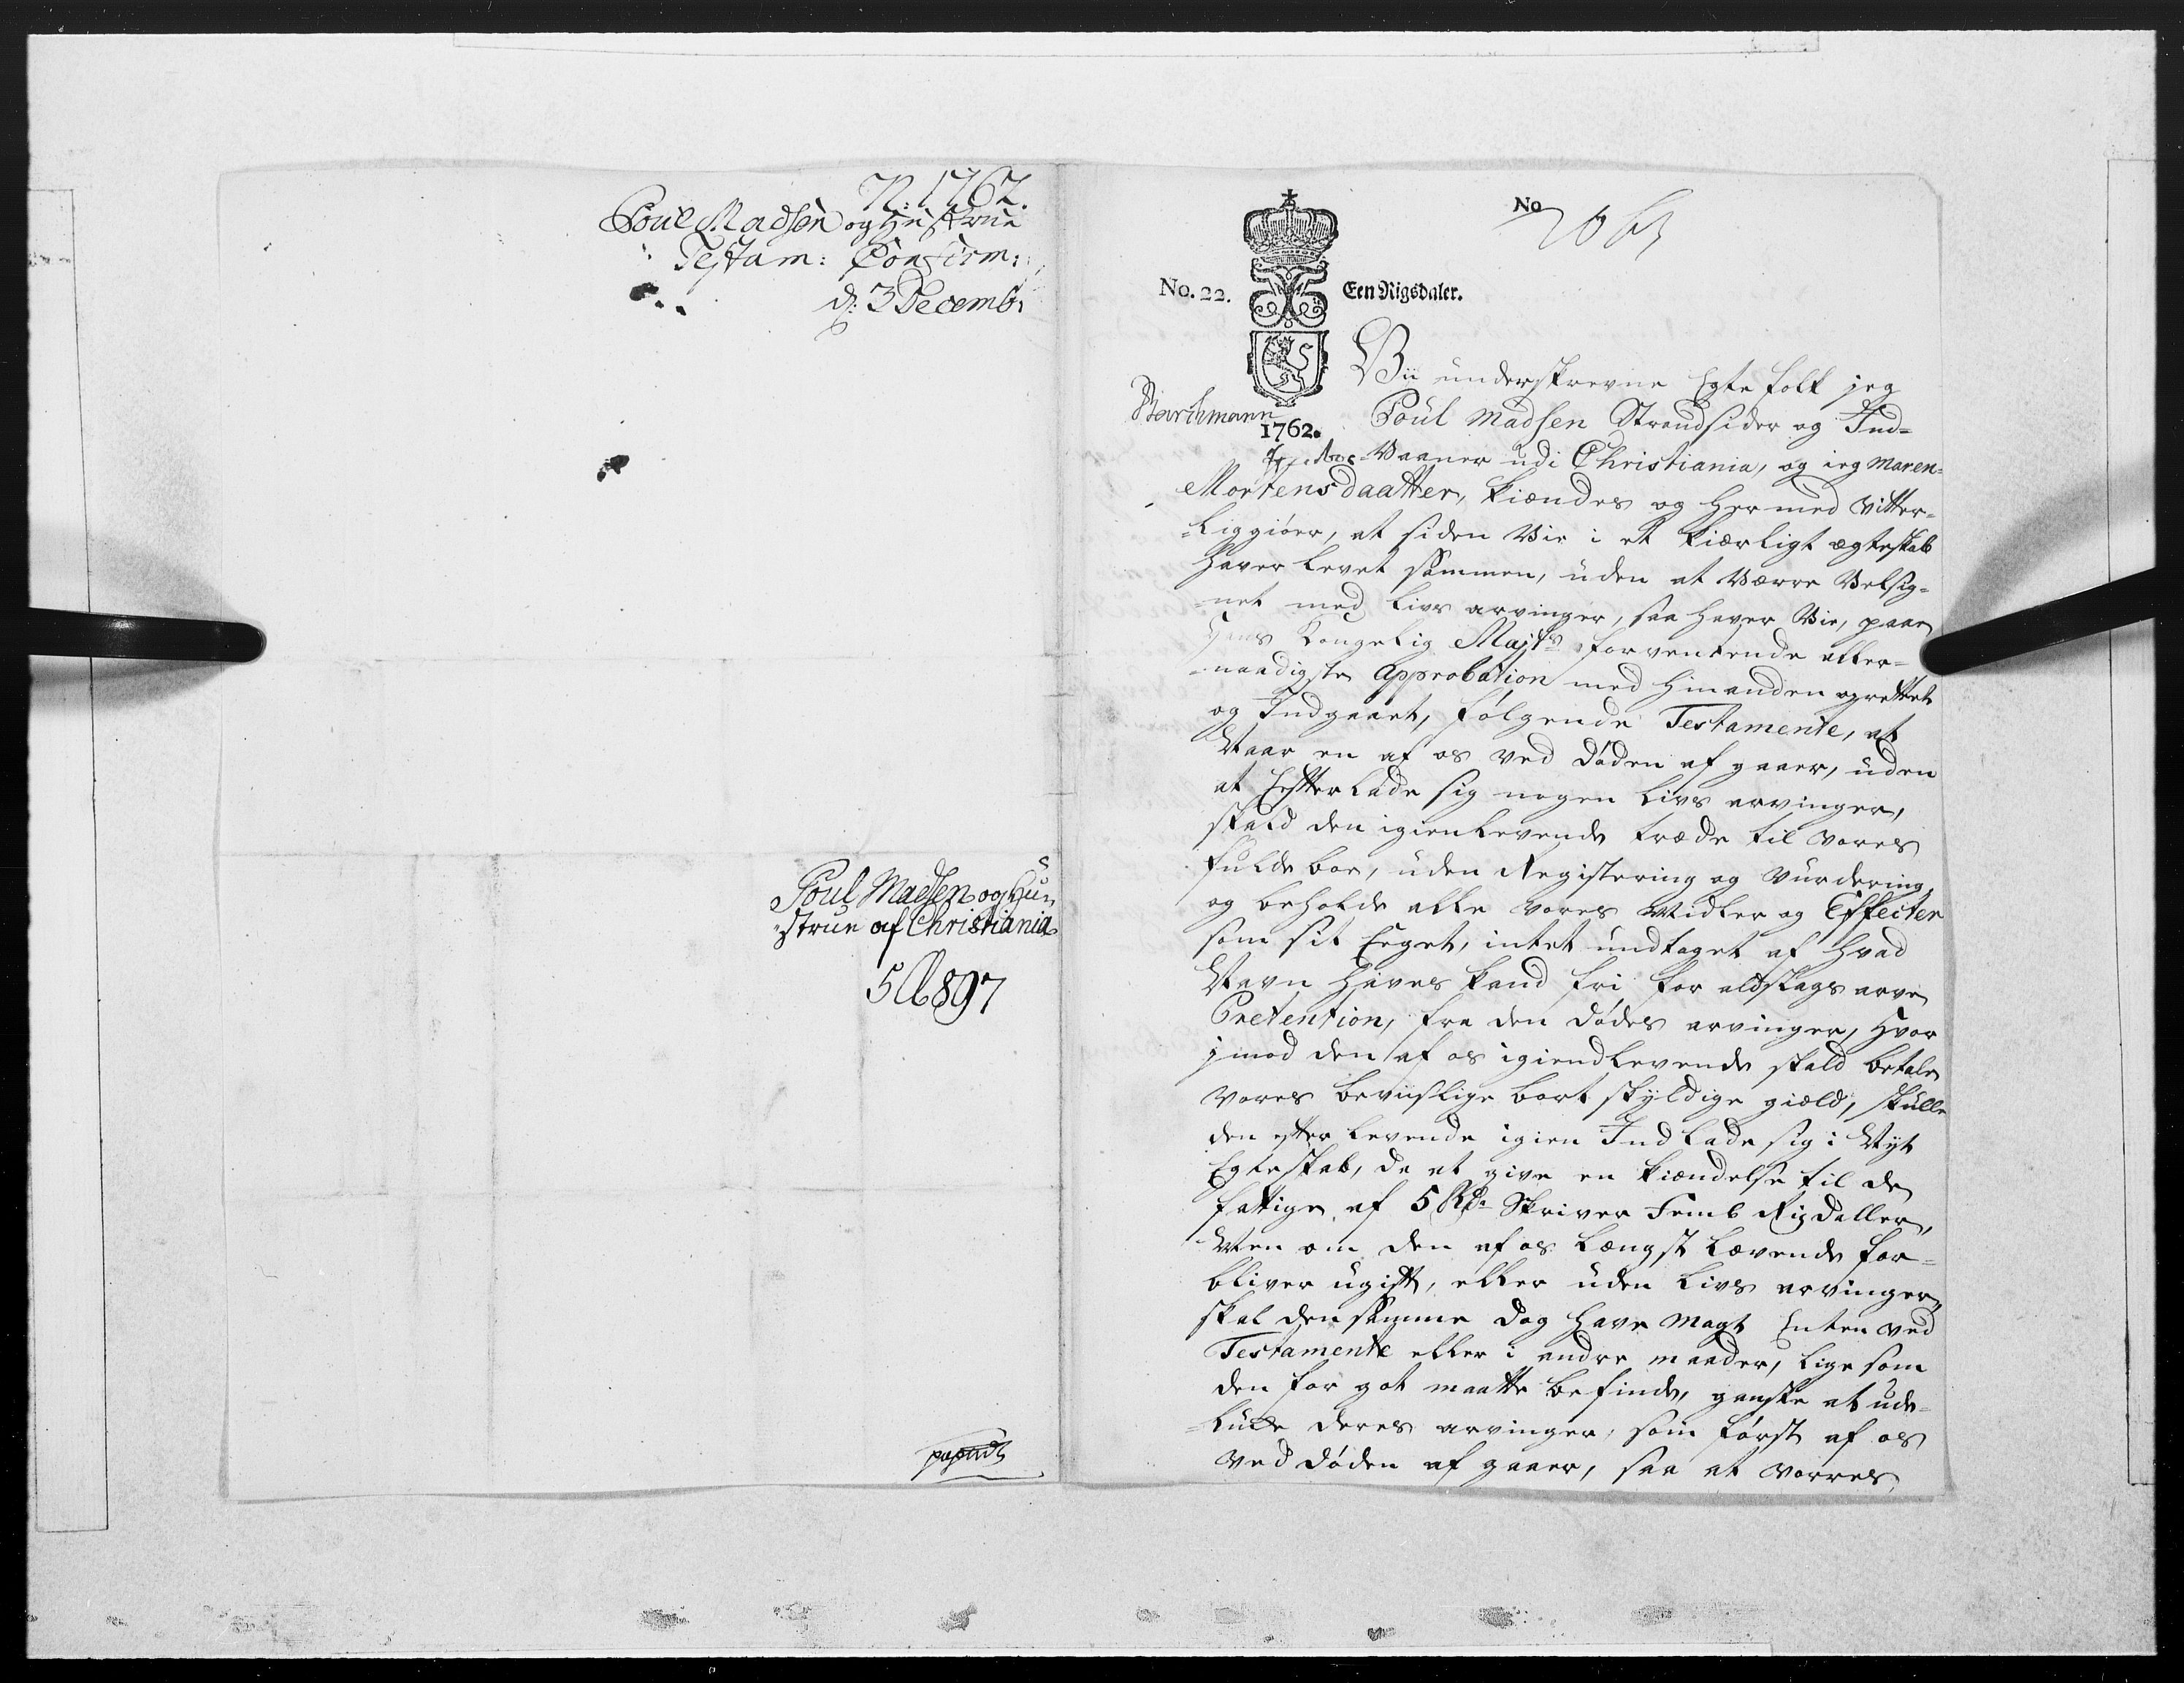 N: 1762.
Poul Madsen og Hustrue
Testam: Confirm:
d: 3 Decemb:
Poul Madsen og Hu-
strue af Christiania
No
No. 22.
Een Rigsdaler.
1762.
Vii underskrevne Egte folk jeg
Poul Madsen Strandsider og Ind-
Vaaner udi Christiania, og ieg Maren
Mortensdaatter, kiændes og hermed vitter-
-liggiører, at siden Vie i et kiærligt ægteskab
haver levet sammen, uden at Værre Velsig-
-net med livs arvinger, saa haver Vie, paa
Hans Kongelig Majts forventende aller-
-naadigste Approbation med hinanden oprettet
og Indgaaet, følgende Testamente, at
Naar en af os ved døden af gaaer, uden
at Efterlade sig nogen livs arvinger,
skald den igienlevende træde til vores
fulde boe, uden Registering og Vurdering,
og beholde alle vores Midler og Effecter
som sit Eeget, intet undtaget af hvad
Navn haves kand fri for alslags arve
Pretention, fra den dødes arvinger, hvor
imod den af os igiendlevende skald betale
vores beviislige bort skyldige giæld, skulle
den efter levende igien Indlade sig i Nyt
Egteskab, da at give en kiændelse til de
fattige af 5 Rdr Skriver Femb Rigdaller,
Men om den af os længst levende for-
bliver ugift, eller uden livs arvinger,
skal den samme dog have Magt Enten ved
Testamente eller i andre maader, lige som
den for got maatte befinde, ganske at ude-
-lucke deres arvinger, som først af os
ved døden af gaaer, saa at vorres